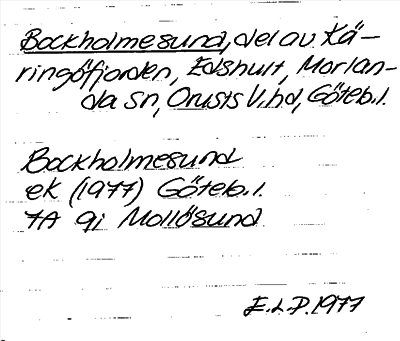 Bockholmesund, del av Kä-
ringöfjorden, Edshult, Morlan-
da sn, Orusts V. hd, Göteb.l.
Bockholmesund
ek (1977) Göteb.l.
7A 9i Mollösund
E.L.P. 1977